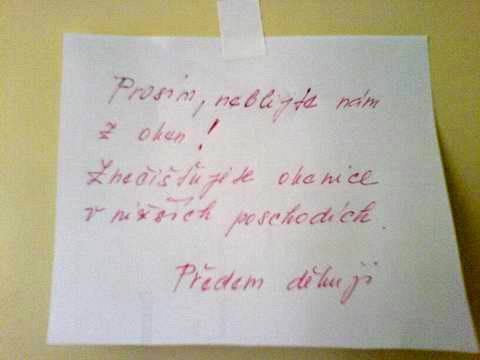 Prosím, neblijte nám
z oken!
Znečišťujete okenice
v nižších poschodích.
Předem děkuji